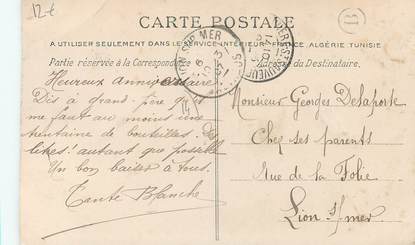 12€
CARTE POSTALE
A UTILISER SEULEMENT DANS LE SERVICE INTÉRIEUR FRANCE, ALGÉRIE, TUNISIE
Partie réservée à la Correspondance
du Destinataire.
B
SUR MER
Heureux Anniversaire
Dis à grand-père qu'il
me faut au moins une
trentaine de bouteilles. Des
litres! autant que possible
Un bon baiser à tous.
Tante Blanche
Monsieur Georges Delaporte
Chez ses parents
rue de la Folie
Lion s/mer